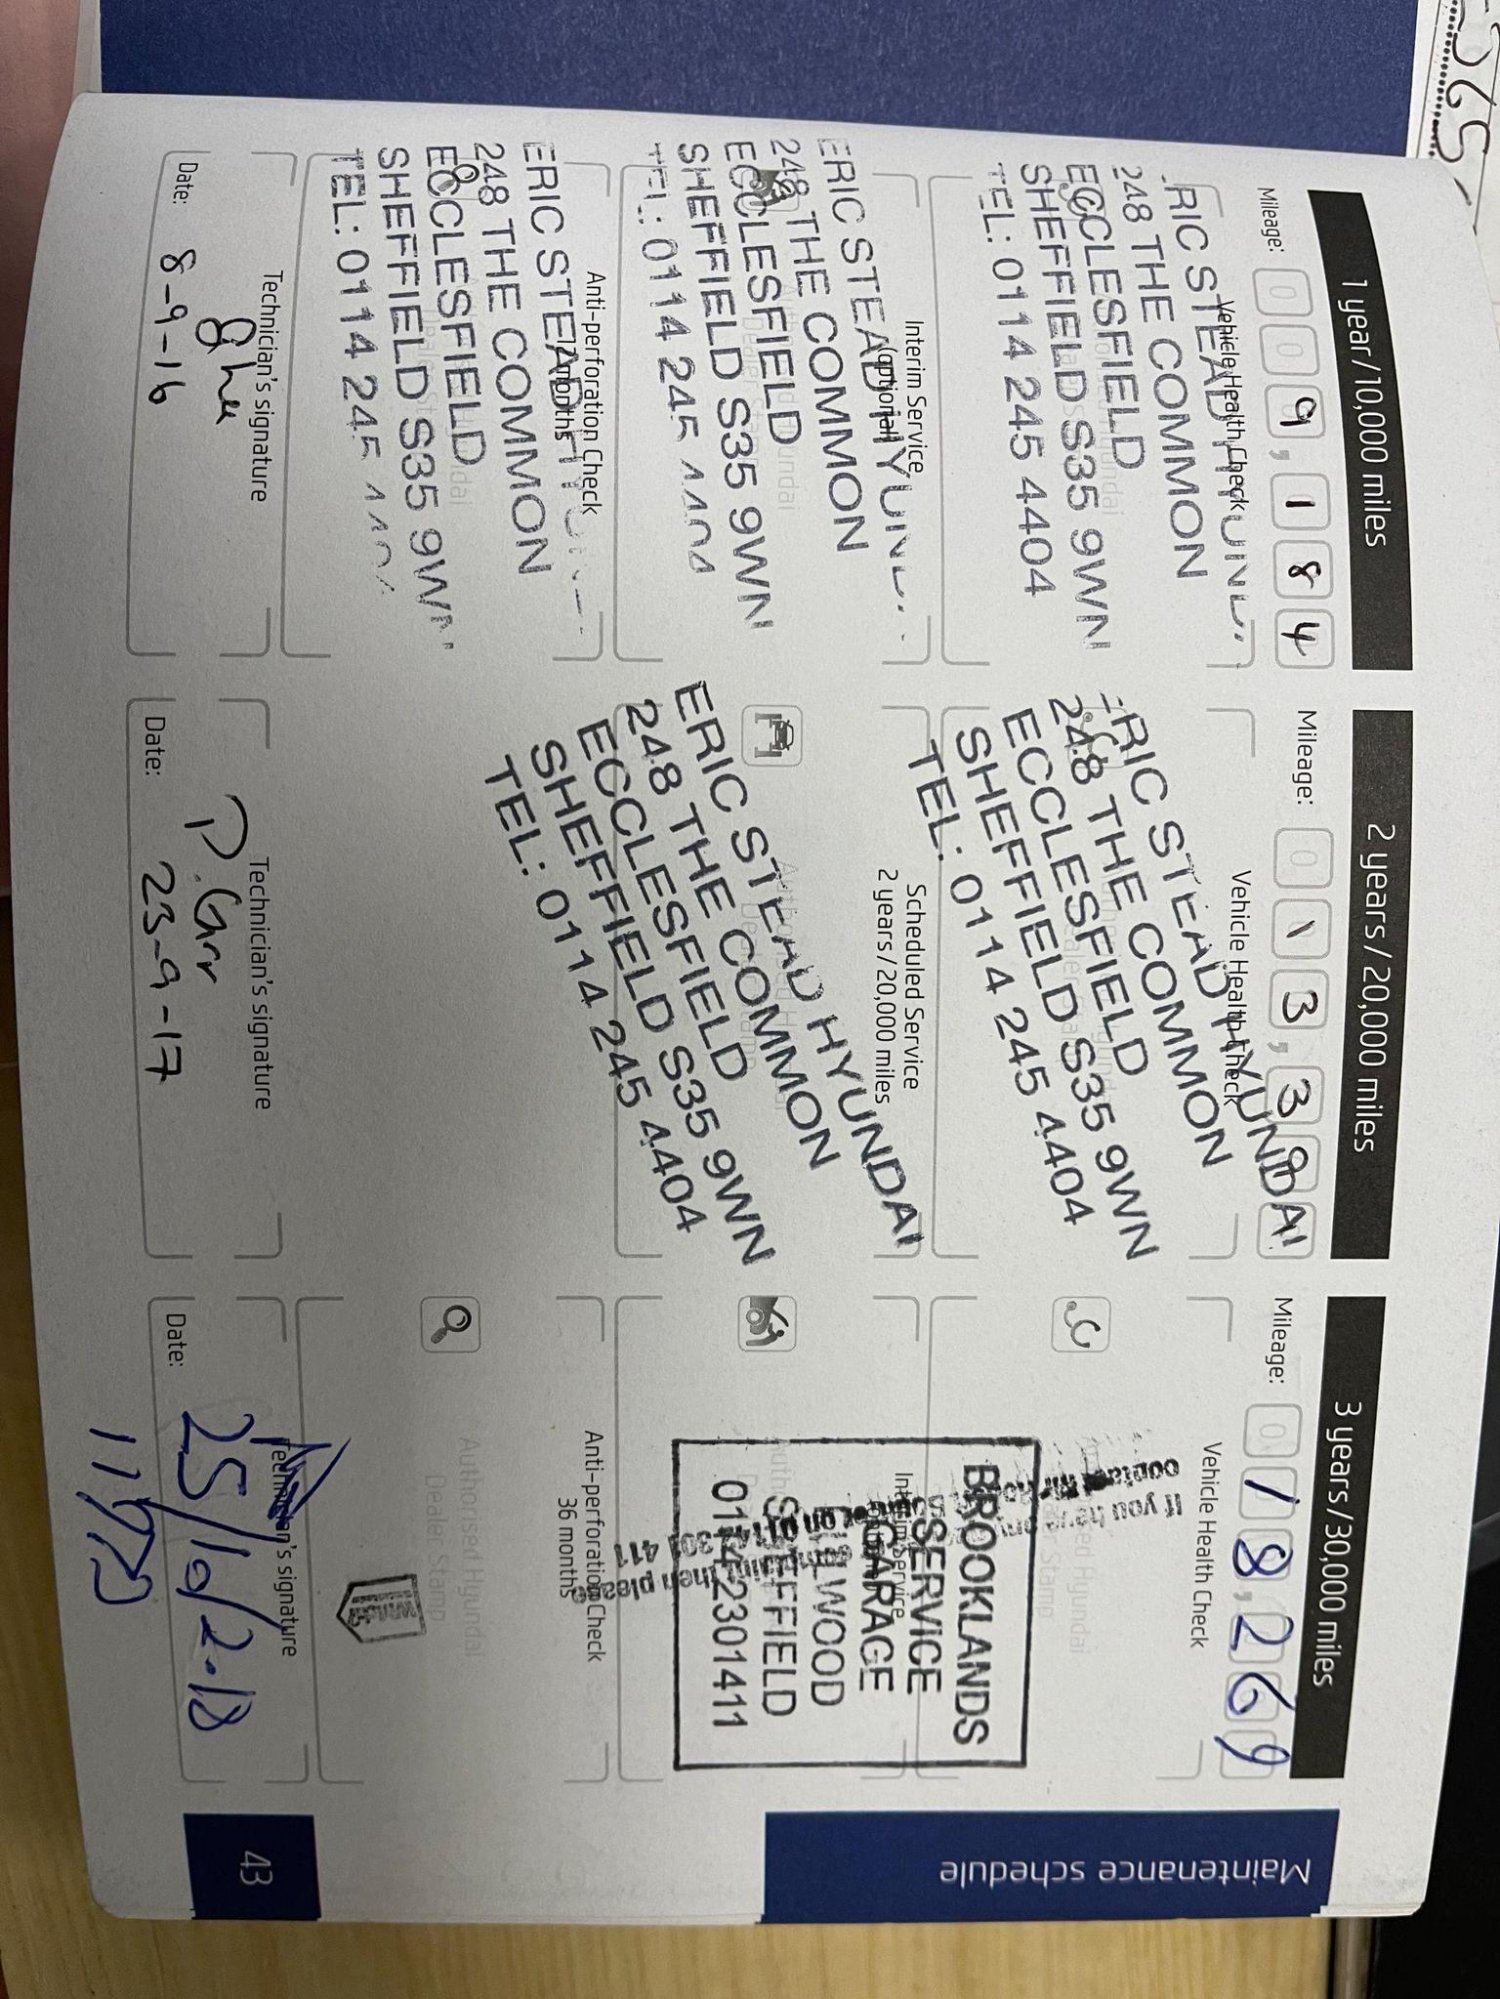 1 year/10,000 miles
Mileage: 0 0 9, 1 8 4
Vehicle Health Check
RIC STEAD HYUND
248 THE COMMON
ECCLESFIELD
SHEFFIELD S35 9WN
TEL: 0114 245 4404
Interim Service
(optional)
ERIC STEAD HYUND
248 THE COMMON
ECCLESFIELD
SHEFFIELD S35 9WN
TEL: 0114 245 4404
Anti-perforation Check
12 months
ERIC STEAD HY
248 THE COMMON
ECCLESFIELD
SHEFFIELD S35 9WN
TEL: 0114 245
Technician's signature
Date: 8-9-16
2 years/20,000 miles
Mileage: 0 1 3, 3 9
Vehicle Health Check
ERIC STEAD HYUNDAI
248 THE COMMON
ECCLESFIELD
SHEFFIELD S35 9WN
TEL: 0114 245 4404
Scheduled Service
2 years/20,000 miles
ERIC STEAD HYUNDAI
248 THE COMMON
ECCLESFIELD
SHEFFIELD S35 9WN
TEL: 0114 245 4404
Technician's signature
Date: 23-9-17
3 years/30,000 miles
Mileage: 0 1 8, 2 6 9
Vehicle Health Check
Authorised Hyundai
Dealer Stamp
If you have any
contact
then please
Interim Service
BROOKLANDS
SERVICE
GARAGE
WOOD
SHEFFIELD
01142301411
Anti-perforation Check
36 months
Authorised Hyundai
Dealer Stamp
Technician's signature
Date: 25/10/2.18
Maintenance schedule
43